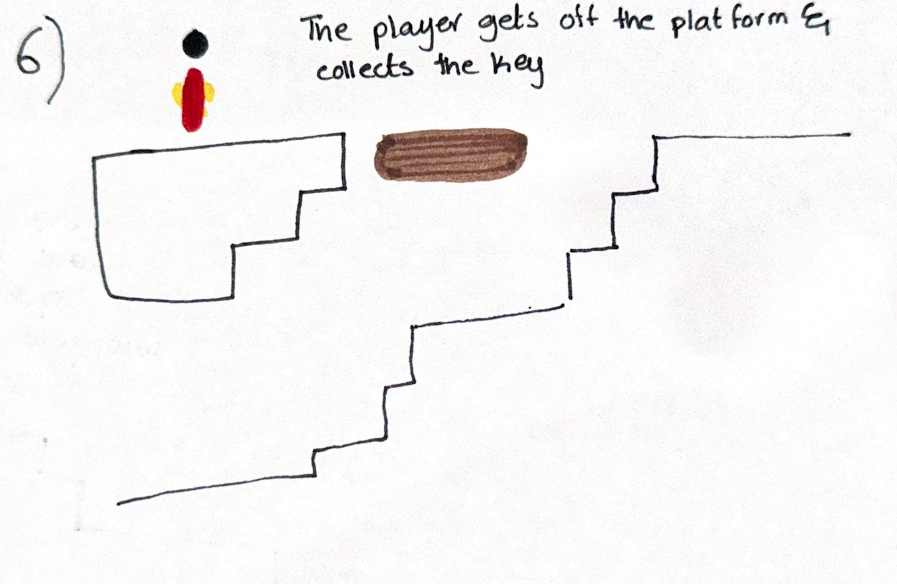 6)
The player gets off the platform &
collects the key